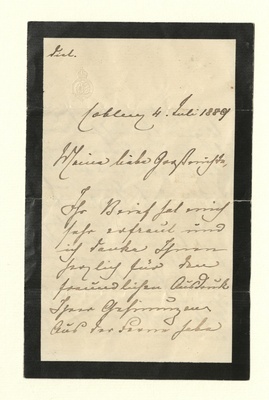 dict.
Coblenz 4. Juli 1889
Meine liebe
Ihr Brief hat mich
sehr erfreut und
ich danke Ihnen
herzlich für den
freundlichen Ausdruck
Ihrer Gesinnungen
Aus der Ferne habe